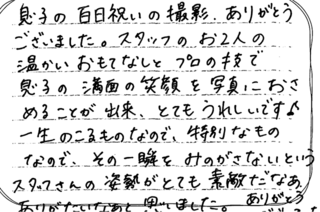 息子の百日祝いの撮影、ありがとう
ございました。スタッフのお2人の
温かいおもてなしとプロの技で
息子の満面の笑顔を写真におさ
めることが出来、とてもうれしいです♪
一生のこるものなので、特別なもの
なので、その一瞬をみのがさないという
スタッフさんの姿勢がとても素敵だなあ、
ありがたいなあと思いました。ありがとう